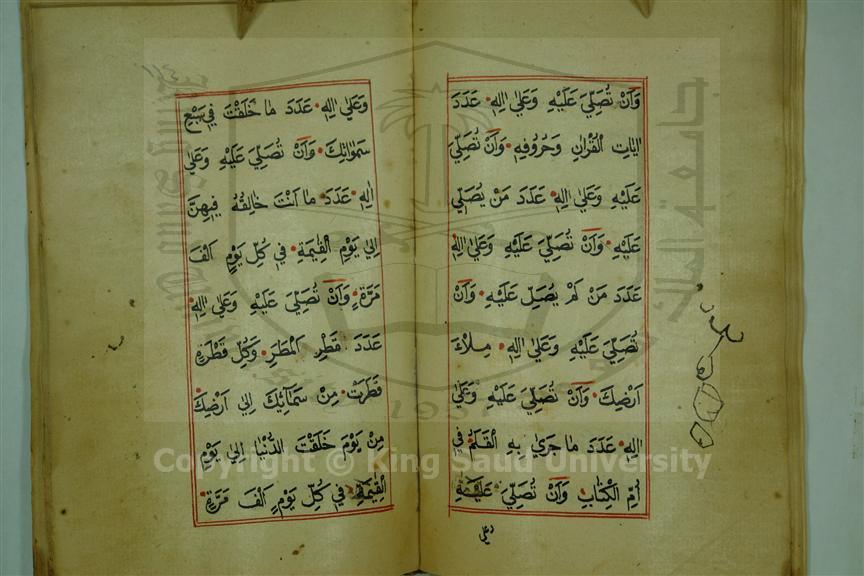 وَاَنْ تُصَلِّيَ عَلَيْهِ وَعَلٰى اٰلِهٖ عَدَدَ
اٰيَاتِ الْقُرْاٰنِ وَحُرُوفِهٖ وَاَنْ تُصَلِّيَ
عَلَيْهِ وَعَلٰى اٰلِهٖ عَدَدَ مَنْ يُصَلِّي
عَلَيْهِ وَاَنْ تُصَلِّيَ عَلَيْهِ وَعَلٰى اٰلِهٖ
عَدَدَ مَنْ لَمْ يُصَلِّ عَلَيْهِ وَاَنْ
تُصَلِّيَ عَلَيْهِ وَعَلٰى اٰلِهٖ مِلَاْءَ
اَرْضِكَ وَاَنْ تُصَلِّيَ عَلَيْهِ وَعَلٰى
اٰلِهٖ عَدَدَ مَا جَرٰى بِهِ الْقَلَمُ فِي
اُمِّ الْكِتَابِ وَاَنْ تُصَلِّيَ عَلَيْهِ
وَعَلٰى اٰلِهٖ عَدَدَ مَا خَلَقْتَ فِي سَبْعِ
سَمٰوَاتِكَ وَاَنْ تُصَلِّيَ عَلَيْهِ وَعَلٰى
اٰلِهٖ عَدَدَ مَا اَنْتَ خَالِقُهُ فِيهِنَّ
اِلٰى يَوْمِ الْقِيٰمَةِ فِي كُلِّ يَوْمٍ اَلْفَ
مَرَّةٍ وَاَنْ تُصَلِّيَ عَلَيْهِ وَعَلٰى اٰلِهٖ
عَدَدَ قَطْرِ الْمَطَرِ وَكُلِّ قَطْرَةٍ
قَطَرَتْ مِنْ سَمَائِكَ اِلٰى اَرْضِكَ
مِنْ يَوْمَ خَلَقْتَ الدُّنْيَا اِلٰى يَوْمِ
الْقِيٰمَةِ فِي كُلِّ يَوْمٍ اَلْفَ مَرَّةٍ
Copyright © King Saud University
جامعة الملك سعود
1957